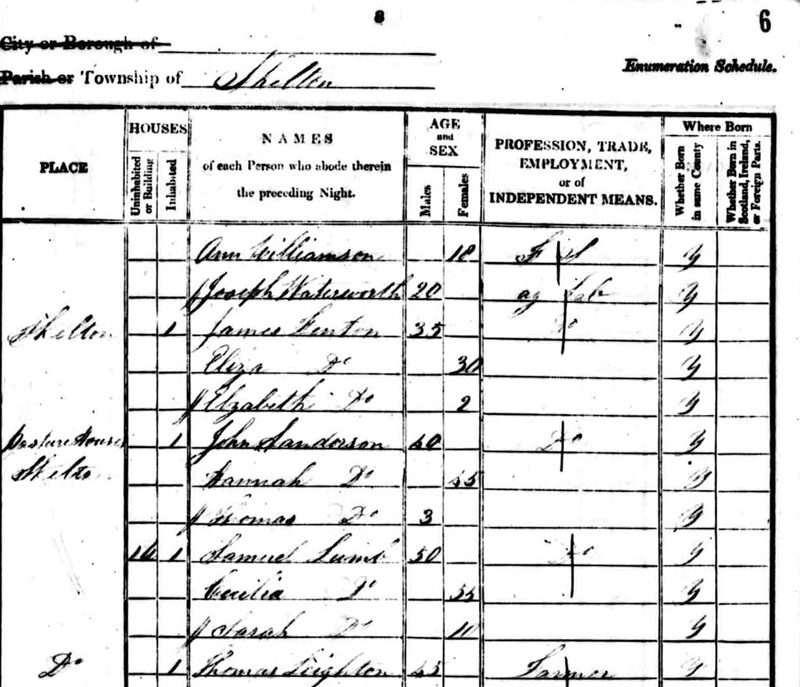 8
6
City or Borough of
Parish or Township of Shelton
Enumeration Schedule.
PLACE
HOUSES
Uninhabited or Building
Inhabited
NAMES
of each Person who abode therein
the preceding Night.
AGE
and
SEX
Males
Females
PROFESSION, TRADE,
EMPLOYMENT,
or of
INDEPENDENT MEANS.
Where Born
Whether Born in same County
Whether Born in Scotland, Ireland, or Foreign Parts.
Ann Williamson 18 F S y
Joseph Waterworth 20 ag Lab y
Shelton 1 James Fenton 35 Do y
Eliza Do 30 y
Elizabeth Do 2 y
Pasture House 1 John Sanderson 40 Do y
Shelton Hannah Do 45 y
Thomas Do 3 y
1 Samuel Lumb 50 Do y
Cecilia Do 55 y
Sarah Do 10 y
Do 1 Thomas Leighton 45 Farmer y